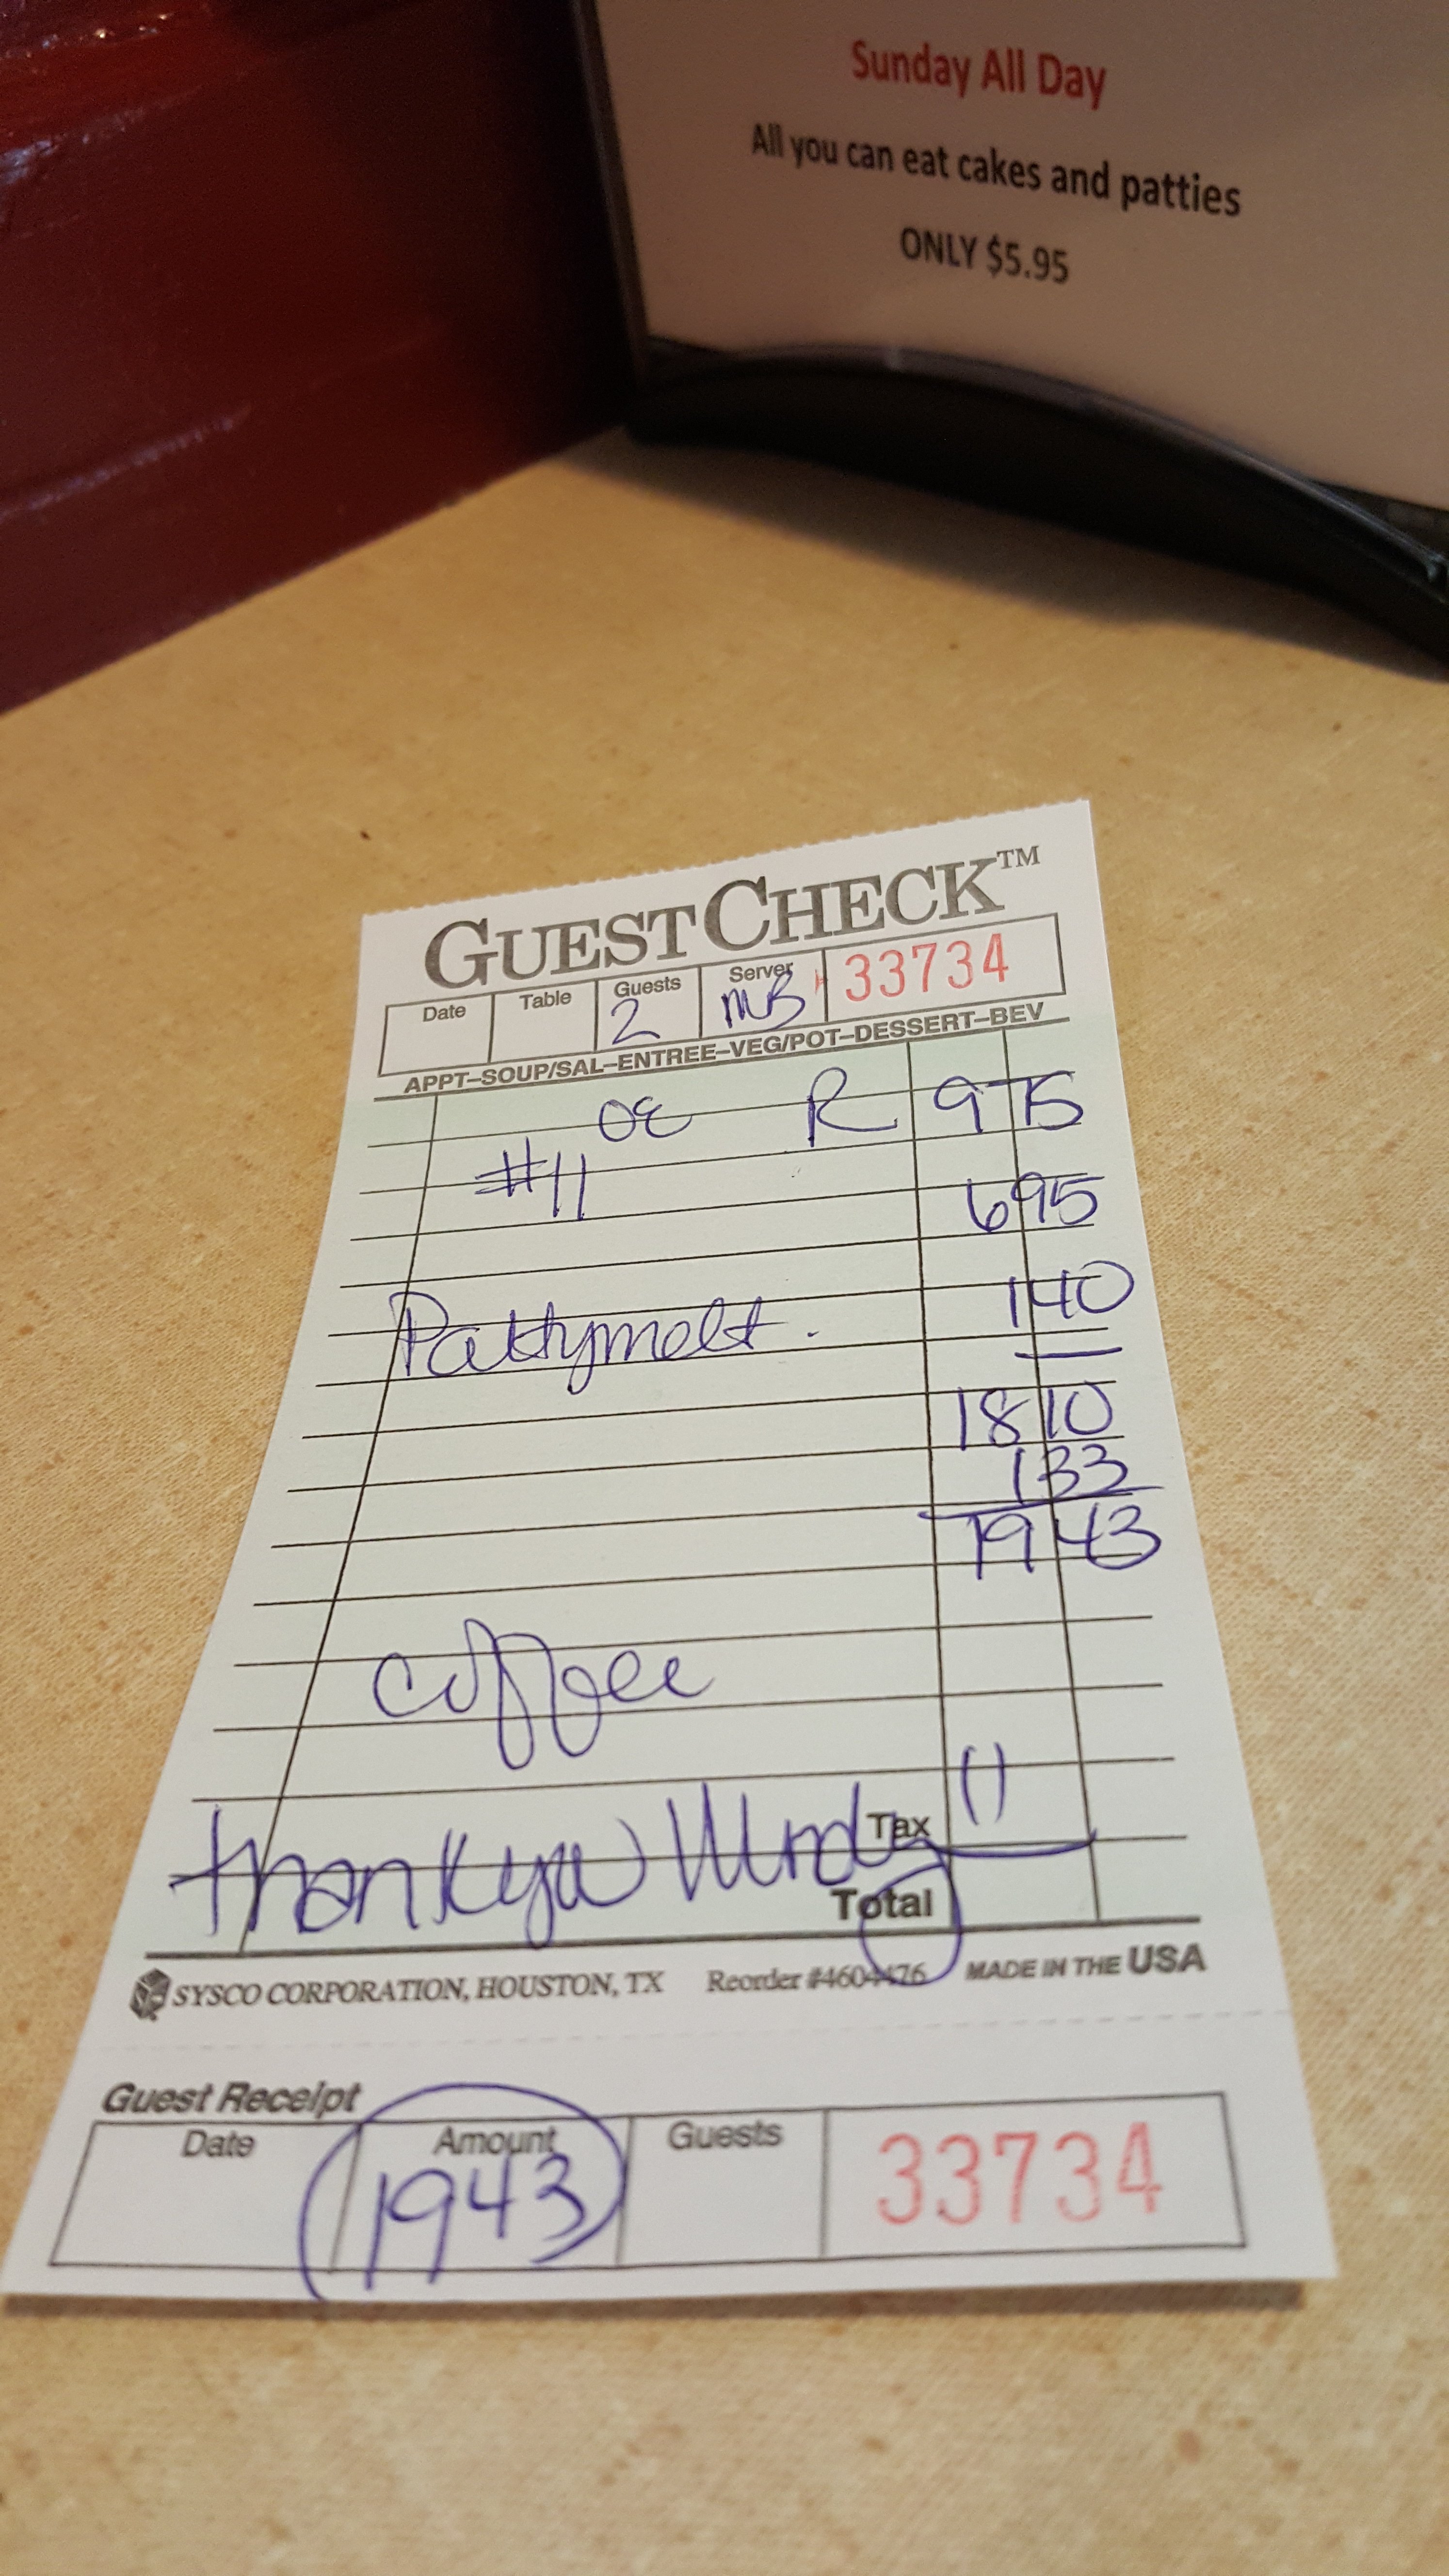 Sunday All Day
All you can eat cakes and patties
ONLY $5.95
GUESTCHECK™
Date Table Guests Server 33734
2 MB
APPT–SOUP/SAL–ENTREE–VEG/POT–DESSERT–BEV
OE R 9 75
#11
6 95
1 40
Pattymelt.
18 10
1 33
19 43
coffee
Tax
thankyou
Total
SYSCO CORPORATION, HOUSTON, TX Reorder #4604476 MADE IN THE USA
Guest Receipt
Date Amount Guests 33734
1943